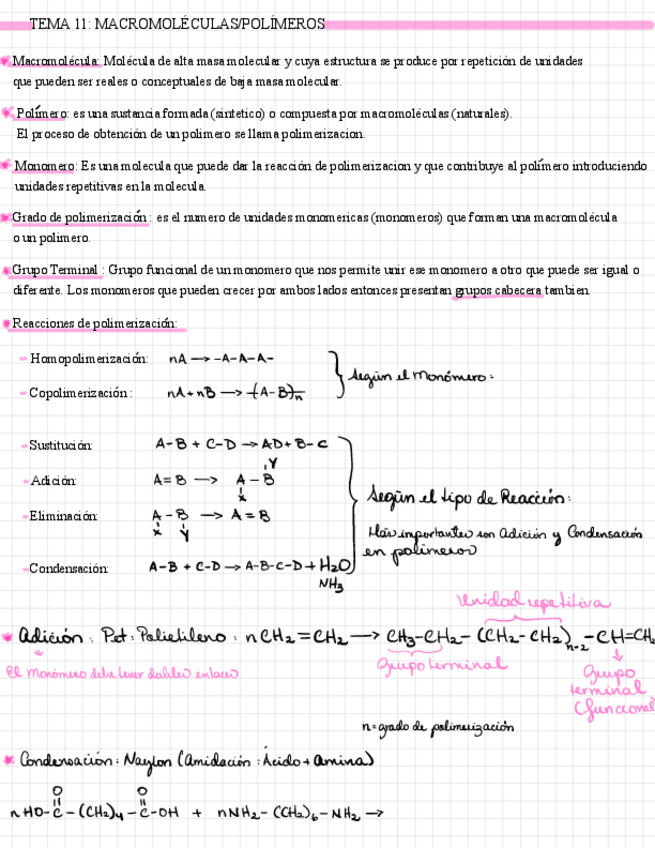 TEMA 11: MACROMOLÉCULAS/POLÍMEROS
Macromolécula: Molécula de alta masa molecular y cuya estructura se produce por repetición de unidades
que pueden ser reales o conceptuales de baja masa molecular.
Polímero: es una sustancia formada (sintetico) o compuesta por macromoléculas (naturales).
El proceso de obtención de un polimero se llama polimerizacion.
Monomero: Es una molecula que puede dar la reacción de polimerizacion y que contribuye al polímero introduciendo
unidades repetitivas en la molecula.
Grado de polimerización: es el numero de unidades monomericas (monomeros) que forman una macromolécula
o un polimero.
Grupo Terminal : Grupo funcional de un monomero que nos permite unir ese monomero a otro que puede ser igual o
diferente. Los monomeros que pueden crecer por ambos lados entonces presentan grupos cabecera tambien.
Reacciones de polimerización:
- Homopolimerización: nA → -A-A-A-
Según el monómero:
- Copolimerización: nA + nB → (A-B)n
- Sustitución: A-B + C-D → AD + B-C
- Adición: A=B → A-B
X Y
Según el tipo de Reacción:
- Eliminación: A-B → A=B
X Y
Más importantes son Adición y Condensación
en polímeros
- Condensación: A-B + C-D → A-B-C-D + H2O
NH3
Unidad repetitiva
Adición: Pet: Polietileno: nCH2=CH2 → CH3-CH2-(CH2-CH2)n-2-CH=CH2
El monómero debe tener dobles enlaces
Grupo terminal
Grupo
terminal
(funcional
n=grado de polimerización
Condensación: Naylon (amidación: Ácido + amina)
O O
nHO-C-(CH2)4-C-OH + nNH2-(CH2)6-NH2 →